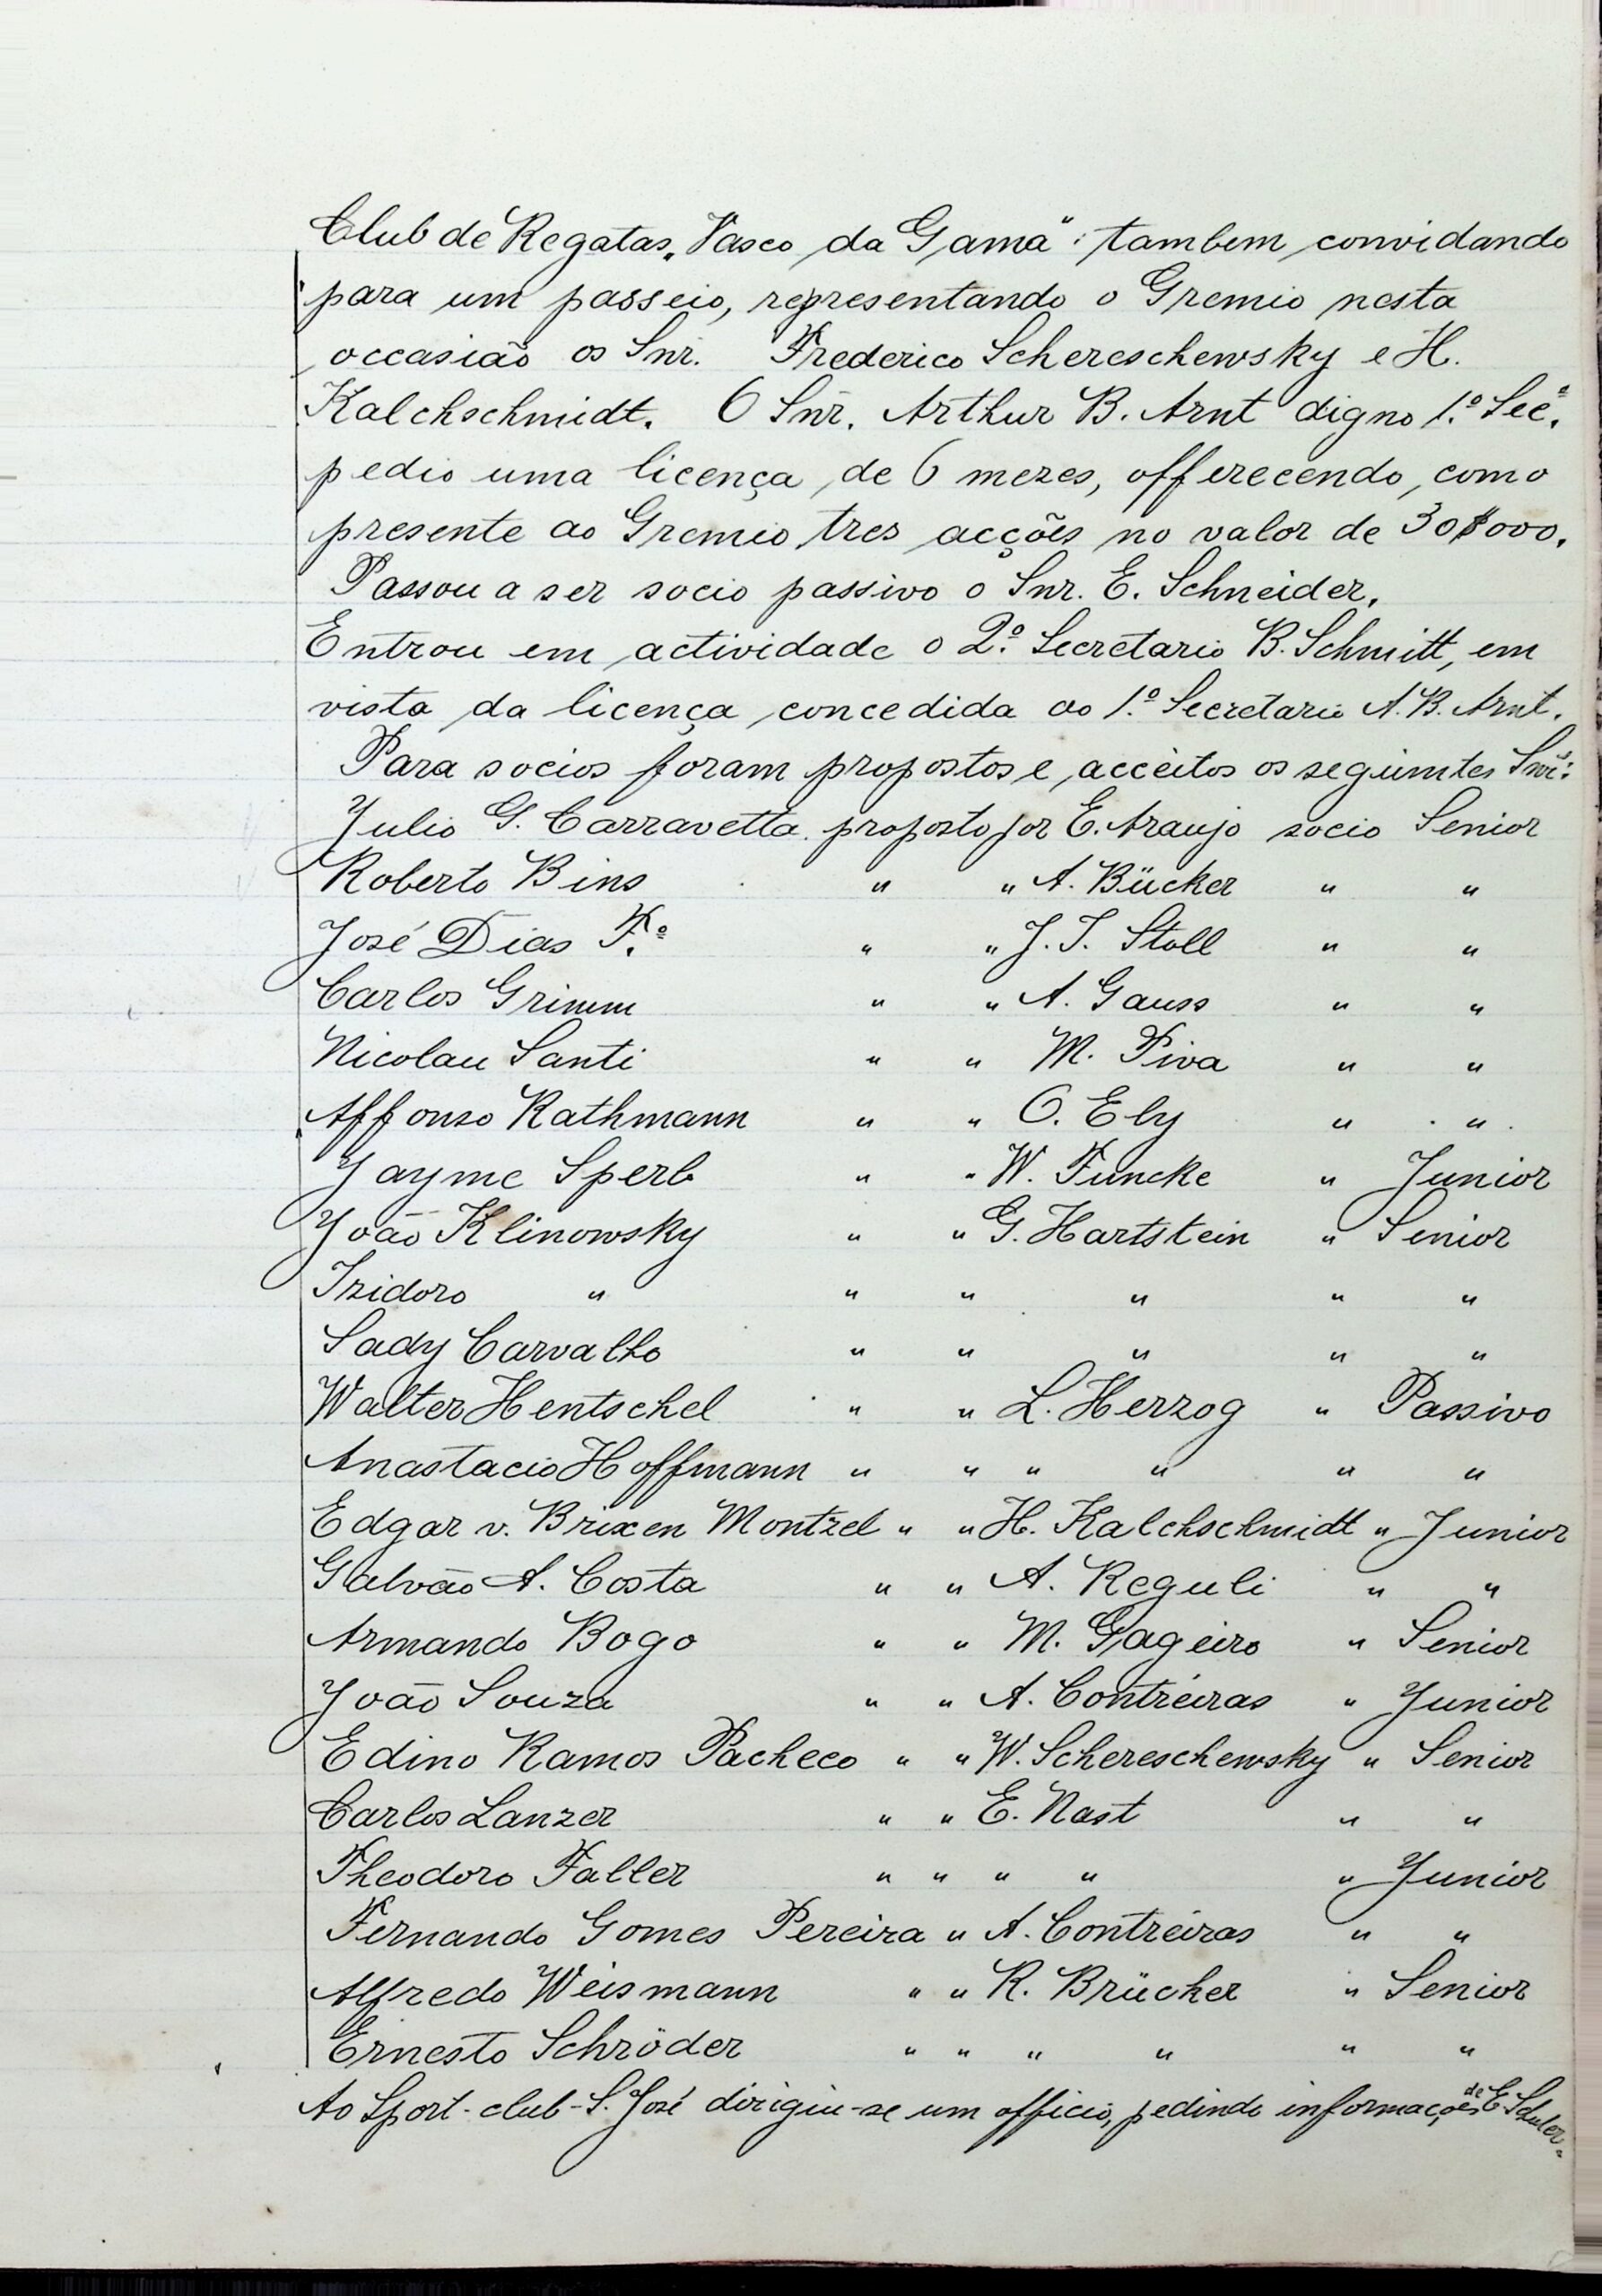 Club de Regatas „Vasco da Gama“: tambem convidando
para um passeio, representando o Gremio nesta
occasião os Snr. Frederico Schereschewsky e H.
Kalchschmidt. O Snr. Arthur B. Arnt digno 1.º Sec.º
pedio uma licença de 6 mezes, offerecendo, como
presente ao Gremio tres acções no valor de 30$000.
Passou a ser socio passivo o Snr. E. Schneider.
Entrou em actividade o 2.º Secretario B. Schmitt, em
vista da licença concedida ao 1.º Secretario A. B. Arnt.
Para socios foram propostos e acceitos os seguintes Snrs:
Julio G. Carravetta proposto por E. Araujo socio Senior
Roberto Bins " " A. Bücker " "
José Dias F.º " " J. T. Stoll " "
Carlos Grimm " " A. Gauss " "
Nicolau Santi " " M. Piva " "
Affonso Rathmann " " O. Ely " "
Jayme Sperb " " W. Funcke " Junior
João Klinowsky " " G. Hartstein " Senior
Izidoro " " " " " "
Sady Carvalho " " " " "
Walter Hentschel " " L. Herzog " Passivo
Anastacio Hoffmann " " " " " "
Edgar v. Brixen Montzel " " H. Kalchschmidt " Junior
Galvão A. Costa " " A. Reguli " "
Armando Bogo " " M. Gageiro " Senior
João Souza " " A. Contreiras " Junior
Edino Ramos Pacheco " " W. Schereschewsky " Senior
Carlos Lanzer " " E. Nast " "
Theodoro Faller " " " " " Junior
Fernando Gomes Pereira " A. Contreiras " "
Alfredo Weismann " " R. Brücher " Senior
Ernesto Schröder " " " " " "
Ao Sport-club-S. José dirigiu-se um officio, pedindo informações de E. Schuler.